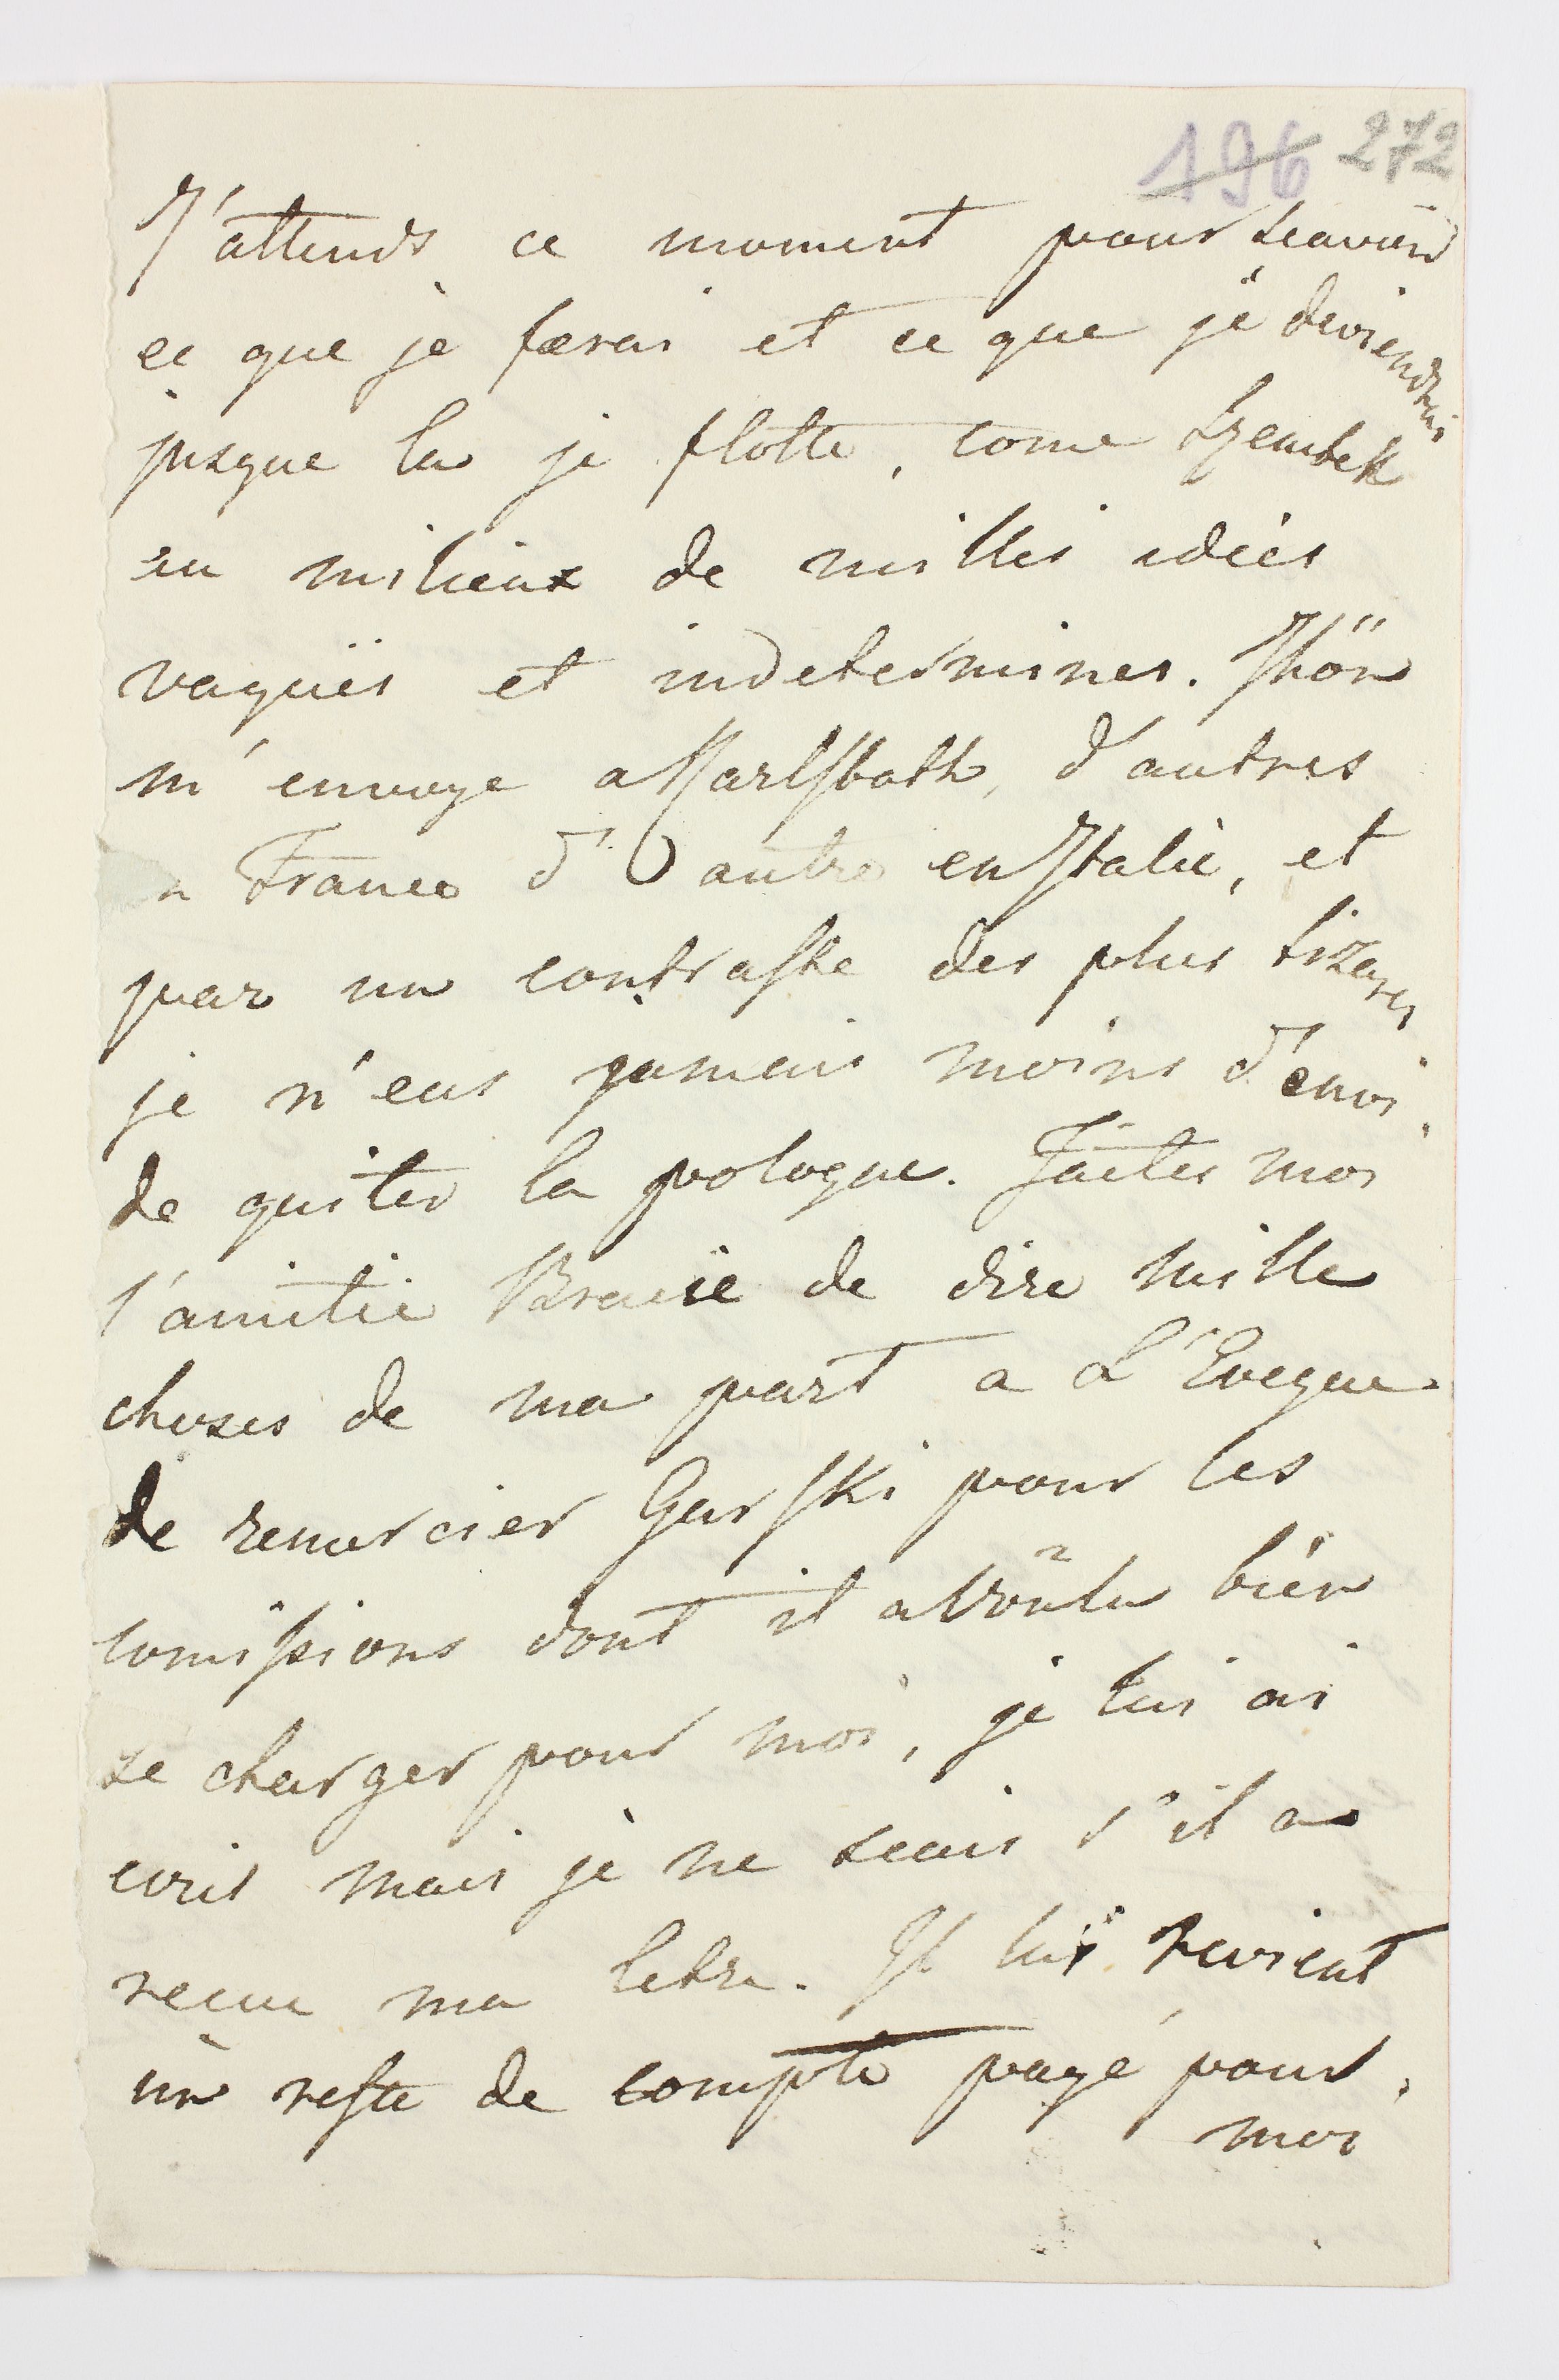 196 272
J'attends ce moment pour scavoir
ce que je ferai et ce que je deviendrai
jusque la je flotte, come Szembek
au milieux de milles idées
vagues et indetermines. Thön
m'envoye a Karlsbath, d'autres
n France d'autre en Italie, et
par un contraste des plus bizares
je n'eus jamais moins d'envi
de quiter la pologne. Faites moi
l'amitié de dire mille
choses de ma part a L'Eveque
de remercier Garski pour les
comissions dont il a voulu bien
se charger pour moi, je lui ai
ecrit mais je ne scais s'il a
recu ma letre. Il lui revient
un reste de compte payé pour
moi